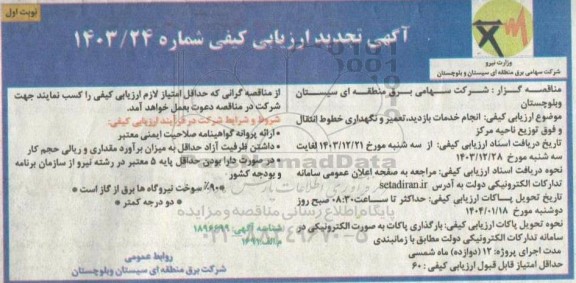 نوبت اول
آگهی تجدید ارزیابی کیفی شماره ۱۴۰۳/۲۴
وزارت نیرو
شرکت سهامی برق منطقه ای سیستان و بلوچستان
مناقصه گزار : شرکت سهامی برق منطقه ای سیستان
وبلوچستان
موضوع ارزیابی کیفی: انجام خدمات بازدید،تعمیر و نگهداری خطوط انتقال
و فوق توزیع ناحیه مرکز
تاریخ دریافت اسناد ارزیابی کیفی: از سه شنبه مورخ ۱۴۰۳/۱۲/۲۱ لغایت
سه شنبه مورخ ۱۴۰۳/۱۲/۲۸
نحوه دریافت اسناد ارزیابی کیفی: مراجعه به صفحه اعلان عمومی سامانه
تدارکات الکترونیکی دولت به آدرس setadiran.ir
تاریخ تحویل پسـاکات ارزیابی کیفی: حداکثر تا ساعت۰۸:۳۰ صبح روز
دوشنبه مورخ ۱۴۰۴/۰۱/۱۸
نحوه تحویل پاکات ارزیابی کیفی: بارگذاری پاکات به صورت الکترونیکی در
سامانه تدارکات الکترونیکی دولت مطابق با زمانبندی
مدت اجرای پروژه: ۱۲ (دوازده) ماه شمسی
حداقل امتیاز قابل قبول ارزیابی کیفی : ۶۰
از مناقصه گرانی که حداقل امتیاز لازم ارزیابی کیفی را کسب نمایند جهت
شرکت در مناقصه دعوت بعمل خواهد آمد.
شروط و شرایط شرکت در فرآیند ارزیابی کیفی:
•ارائه پروانه گواهینامه صلاحیت ایمنی معتبر
• داشتن ظرفیت آزاد حداقل به میزان برآورد مقداری و ریالی حجم کار
• در صورت دارا بودن حداقل پایه ۵ معتبر در رشته نیرو از سازمان برنامه
و بودجه کشور
•۹۰٪ سوخت نیروگاه ها برق از گاز است •
• دو درجه کمتر •
شناسه آگهی ۱۸۹۶۱۹۹
روابط عمومی
شرکت برق منطقه ای سیستان وبلوچستان